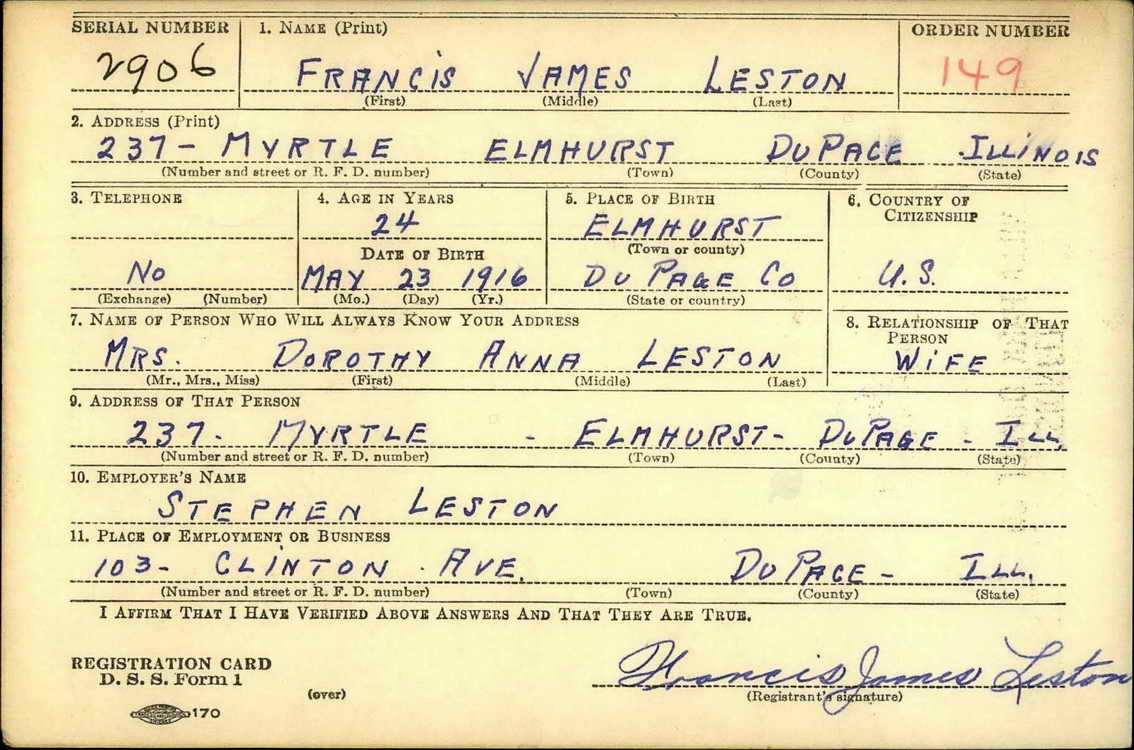 SERIAL NUMBER 1. NAME (Print) ORDER NUMBER
2906 FRANCIS JAMES LESTON 149
(First) (Middle) (Last)
2. ADDRESS (Print)
237- MYRTLE ELMHURST DUPAGE ILLINOIS
(Number and street or R. F. D. number) (Town) (County) (State)
3. TELEPHONE 4. AGE IN YEARS 5. PLACE OF BIRTH 6. COUNTRY OF CITIZENSHIP
24 ELMHURST
DATE OF BIRTH (Town or county)
No MAY 23 1916 DU PAGE CO U.S.
(Exchange) (Number) (Mo.) (Day) (Yr.) (State or country)
7. NAME OF PERSON WHO WILL ALWAYS KNOW YOUR ADDRESS 8. RELATIONSHIP OF THAT PERSON
MRS. DOROTHY ANNA LESTON WIFE
(Mr., Mrs., Miss) (First) (Middle) (Last)
9. ADDRESS OF THAT PERSON
237- MYRTLE - ELMHURST- DUPAGE - ILL.
(Number and street or R. F. D. number) (Town) (County) (State)
10. EMPLOYER'S NAME
STEPHEN LESTON
11. PLACE OF EMPLOYMENT OR BUSINESS
103- CLINTON AVE. DUPAGE - ILL.
(Number and street or R. F. D. number) (Town) (County) (State)
I AFFIRM THAT I HAVE VERIFIED ABOVE ANSWERS AND THAT THEY ARE TRUE.
REGISTRATION CARD Francis James Leston
D. S. S. Form 1 (over) (Registrant's signature)
170